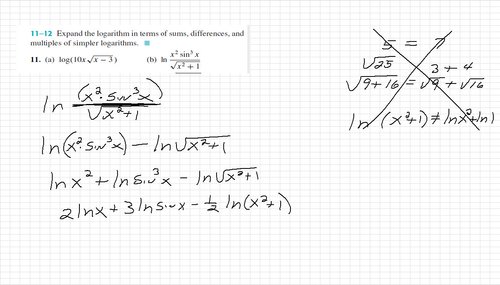 11–12 Expand the logarithm in terms of sums, differences, and
multiples of simpler logarithms.
11. (a) log(10x√(x − 3)) (b) ln (x² sin³ x)/√(x² + 1)
5 = 7
√25 3 + 4
√(9+16) = √9 + √16
ln (x²+1) ≠ lnx²+ln1
ln (x²·sin³x)/√(x²+1)
ln(x²·sin³x) − ln√(x²+1)
lnx² + ln sin³x − ln√(x²+1)
2lnx + 3lnsinx − ½ ln(x²+1)